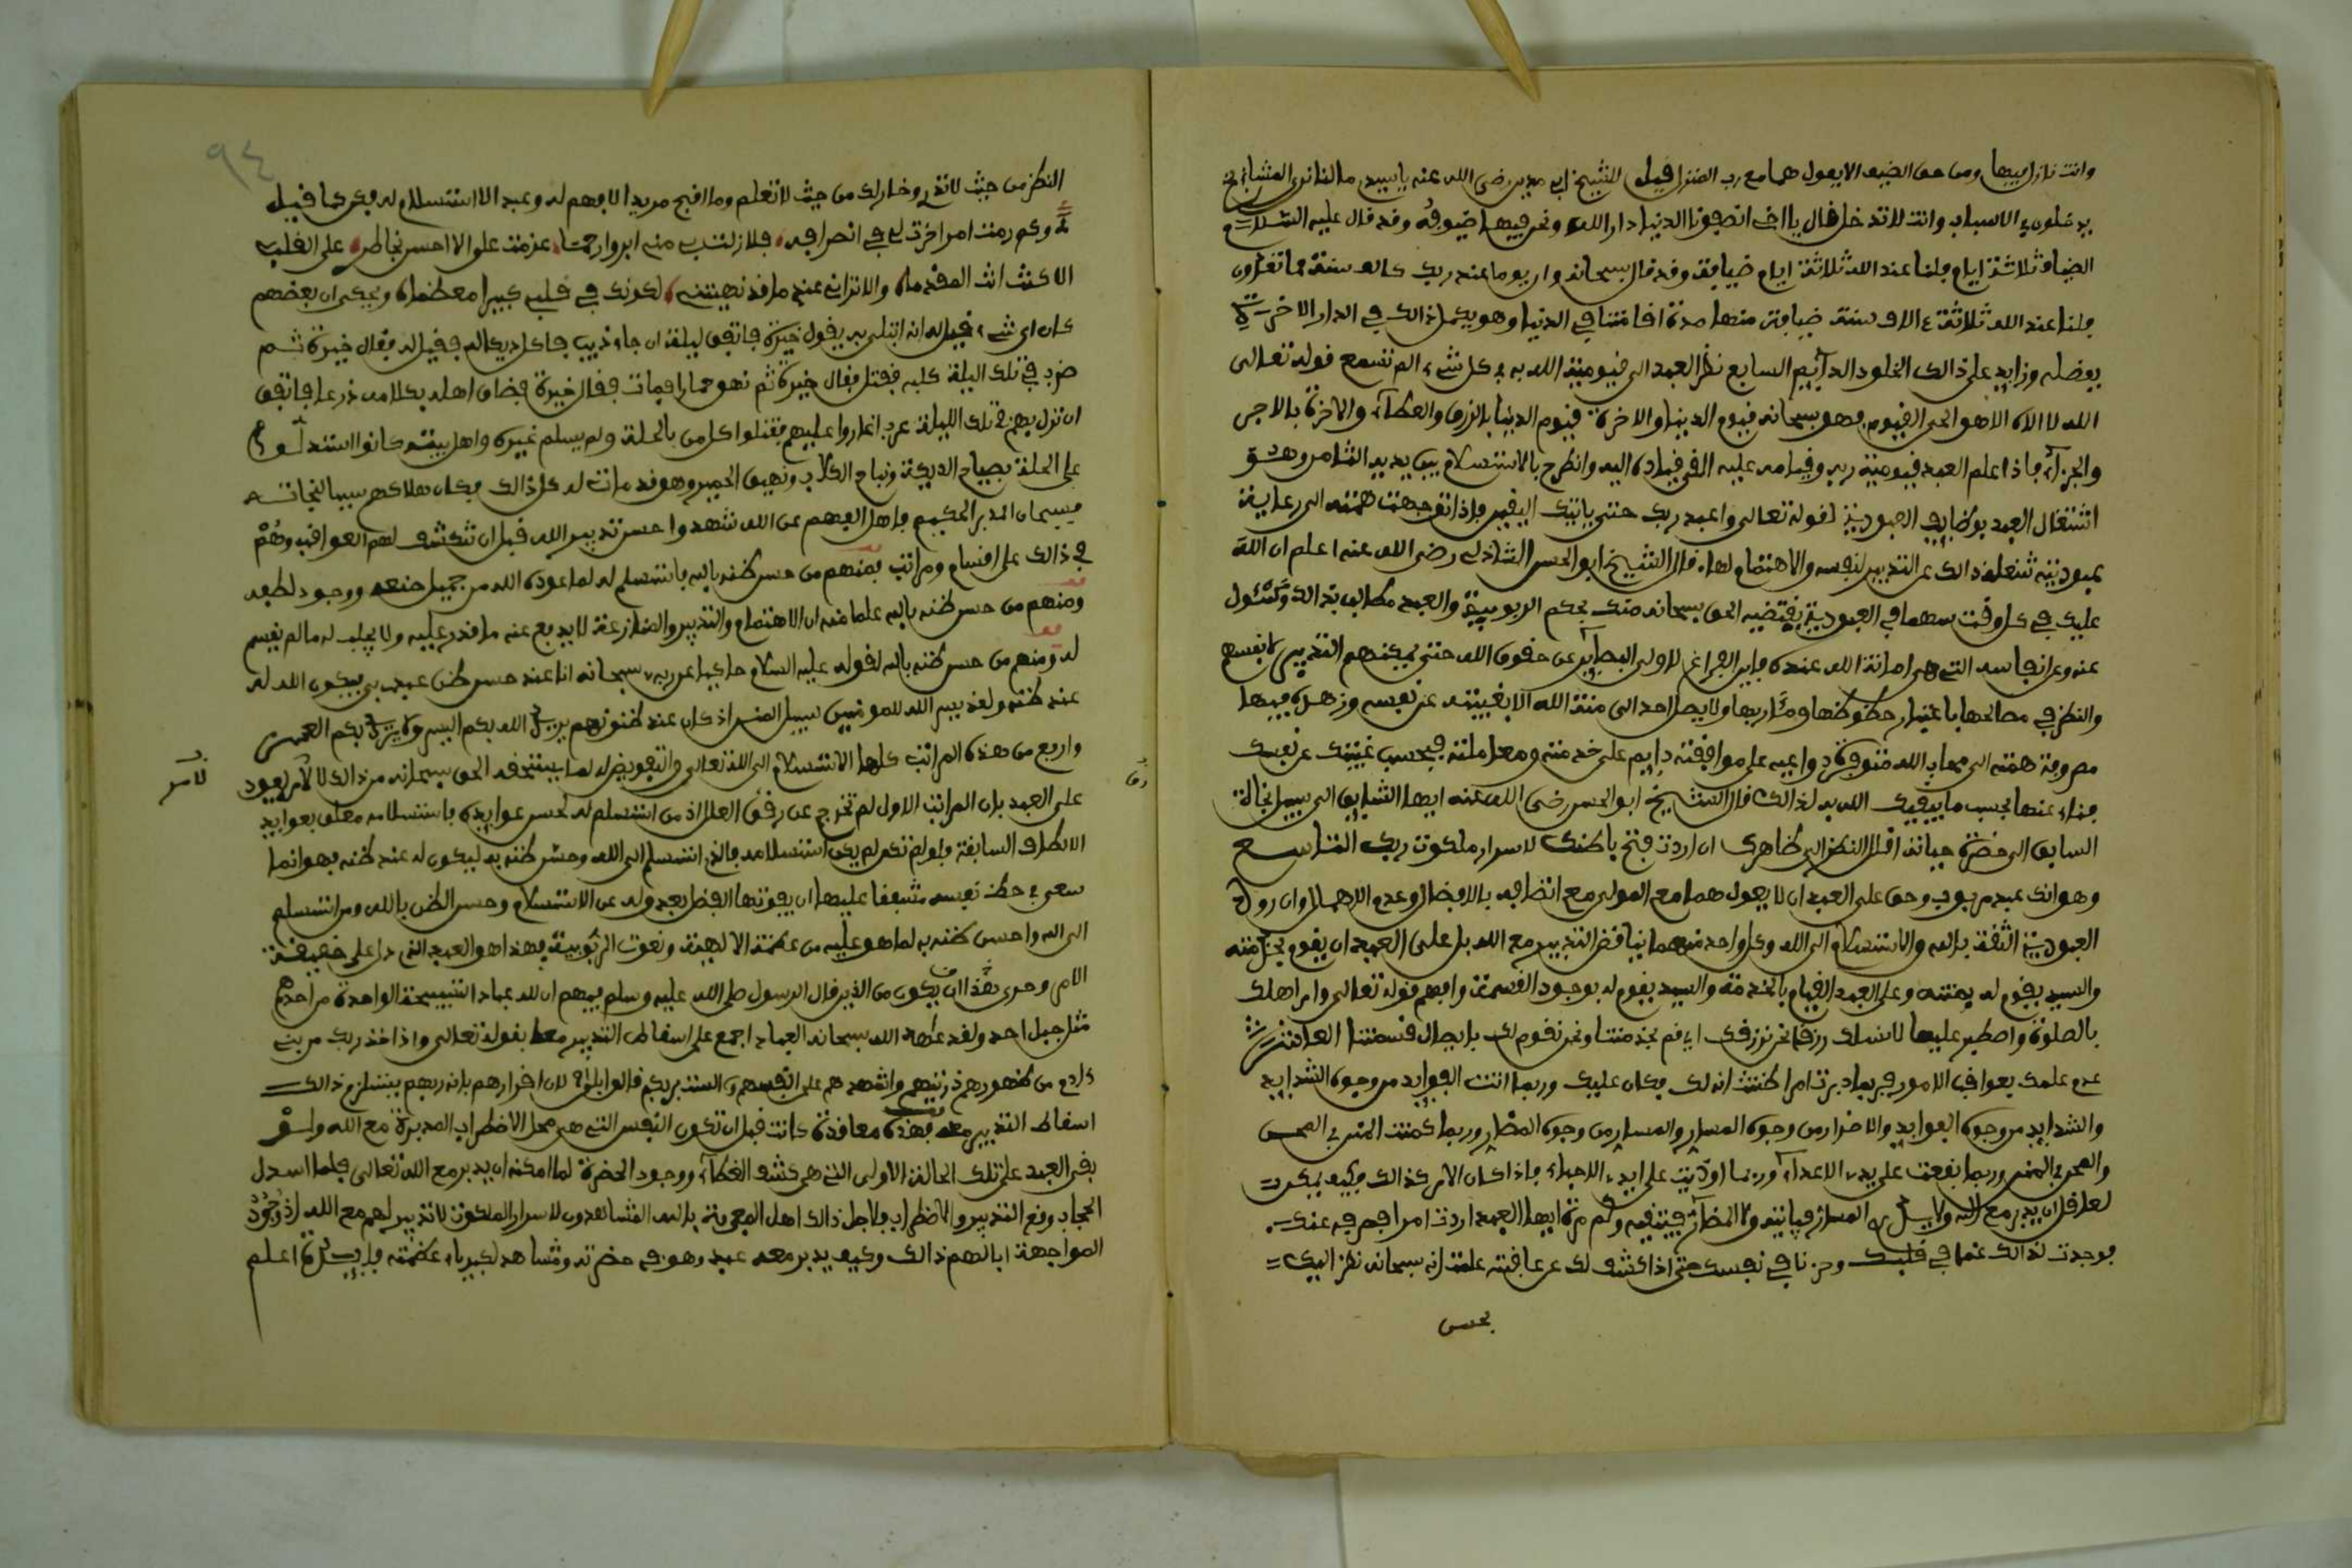 وانت نازل فيها ومن حق الضيف الا يعول هما مع رب المنزل قيل للشيخ ابي مدين رضي الله عنه يا سيدي ما لنا نرى المشايخ
يدخلون في الاسباب وانت لا تدخل فقال يا اخي انصفونا الدنيا دار الله ونحن فيها ضيوفه وقد قال عليه السلام
الضيافة ثلاثة ايام فلنا عند الله ثلاثة ايام ضيافة وقد قال سبحانه وان يوما عند ربك كالف سنة مما تعدون
فلنا عند الله ثلاثة ءالاف سنة ضيافة منها مدة اقامتنا في الدنيا وهو يكمل ذالك في الدار الاخرة
بفضله وزايد على ذالك الخلود الدايم السابع نظر العبد الى قيومية الله به في كل شيء الم تسمع قوله تعالى
الله لا الاه الا هو الحي القيوم فهو سبحانه قيوم الدنيا والاخرة قيوم الدنيا بالرزق والعطاء والاخرة بالاجر
والجزاء فاذا علم العبد قيومية ربه وقيامه عليه القى قياده اليه وانطرح بالاستسلام بين يديه الثامن وهو
اشتغال العبد بوظايف العبودية لقوله تعالى واعبد ربك حتى ياتيك اليقين فاذا توجهت همته الى رعاية
عبوديته شغله ذالك عن التدبير لنفسه والاهتمام لها قال الشيخ ابو الحسن الشاذلي رضي الله عنه اعلم ان الله
عليك في كل وقت سهما في العبودية يقتضيه الحق سبحانه منك بحكم الربوبية والعبد مطالب بذالك ومسئول
عنه وعن انفاسه التي هي امانة الله عنده فاين الفراغ لاولي البصاير عن حقوق الله حتى يمكنهم التدبير لانفسهم
والنظر في مصالحها باعتبار حظوظها ومآربها ولا يصل احد الى منة الله الا بغيبته عن نفسه وزهده فيها
مصروفة همته الى محاب الله متوفرة دواعيه على موافقته دايم على خدمته ومعاملته فبحسب غيبتك عن نفسك
فناء عنها بحسب ما يبقيك الله به لذالك قال الشيخ ابو الحسن رضي الله عنه ايها السابق الى سبيل نجاته
السايق الى حضرة جنابه اقلل النظر الى ظاهرك ان اردت فتح باطنك لاسرار ملكوت ربك التاسع
وهو انك عبد مربوب وحق على العبد ان لا يعول هما مع المولى مع اتصافه بالافضال وعدم الاهمال وان روح
العبودية الثقة بالله والاستسلام الى الله وكل واحد منهما يناقض التدبير مع الله بل على العبد ان يقوم بخدمته
والسيد يقوم له بمنته وعلى العبد القيام بالخدمة والسيد يقوم له بوجود القسمة وافهم قوله تعالى وامر اهلك
بالصلوة واصطبر عليها لا نسئلك رزقا نحن نرزقك اي قم بخدمتنا ونحن نقوم لك بايصال قسمتنا العاشر
عدم علمك بعواقب الامور فربما دبرت امرا ظننت انه لك فكان عليك وربما اتت الفوايد من وجوه الشدايد
والشدايد من وجوه الفوايد والاضرار من وجوه المسار والمسار من وجوه المضار وربما كمنت المنن في المحن
والمحن في المنن وربما نفعت على يد الاعداء وربما اوذيت على ايد الاحباء فاذا كان الامر كذالك فكيف يمكن
لعاقل ان يدبر مع الله ولا يدري المسار فياتيها ولا المضار فيتقيها وكم مرة ايها العبد اردت امرا فصرفه عنك
فوجدت لذالك غما في قلبك وحزنا في نفسك حتى اذا كشف لك عن عاقبته علمت انه سبحانه نظر اليك
بحسن
٩٤
النظر من حيث لا تدري وخار لك من حيث لا تعلم وما اقبح مريدا لا فهم له وعبدا لا استسلام له فكن كما قيل
وكم رمت امرا خرت لي في انصرافه فلا زلت بي منه ابر وارحما عزمت على الا احس بخاطر على القلب
الا كنت انت المقدما والا تراني عند ما قد نهيتني لكونك في قلبي كبيرا معظما ويحكى ان بعضهم
كان اي شيء قيل له انه ابتلي به يقول خيرة فاتفق ليلة ان جاء ذيب فاكل ديكا له فقيل له فقال خيرة ثم
ضرب في تلك الليلة كلبه فقتل فقال خيرة ثم نهق حماره فمات فقال خيرة فضاق اهله بكلامه ذرعا فاتفق
ان نزل بهم في تلك الليلة عرب اغاروا عليهم فقتلوا كل من بالحلة ولم يسلم غيره واهل بيته كانوا استدلوا
على الحلة بصياح الديكة ونباح الكلاب ونهيق الحمير وهو قد ماتت له كل ذالك فكان هلاكهم سببا لنجاته
فسبحان المدبر الحكيم فاهل الفهم عن الله شهدوا حسن تدبير الله قبل ان تنكشف لهم العواقب وهم
في ذالك على اقسام ومراتب فمنهم من حسن ظنه بالله فاستسلم له لما عوده الله من جميل صنعه ووجود لطفه
ومنهم من حسن ظنه بالله علما منه ان الاهتمام والتدبير والمنازعة لا يدفع عنه ما قدر عليه ولا يجلب له ما لم يقسم
له ومنهم من حسن ظنه بالله لقوله عليه السلام حاكيا عن ربه سبحانه انا عند حسن ظن عبدي بي فيكون الله له
عند ظنه ولقد يسر الله للمومنين سبيل المنن اذ كان عند ظنونهم يريد الله بكم اليسر ولا يريد بكم العسر
وارفع من هذه المراتب كلها الاستسلام الى الله تعالى والتفويض له لما يستحقه الحق سبحانه من ذالك لا لامر يعود
لامر
على العبد فان المراتب الاول لم تخرج عن رق العلل اذ من استسلم له لحسن عوايده فاستسلامه معلق بعوايد
رق
الالطاف السابقة فلو لم تكن لم يكن استسلامه فالذي استسلم الى الله وحسن ظنه به ليكون له عند ظنه فهو انما
سعى في حظ نفسه مشفقا عليها ان يفوتها الفضل بعدوله عن الاستسلام وحسن الظن بالله ومن استسلم
الى الله واحسن ظنه به لما هو عليه من عظمة الالهية ونعوت الربوبية فهذا هو العبد الذي دل على حقيقة
الامر وحرى بهذا ان يكون من الذين قال الرسول صلى الله عليه وسلم فيهم ان لله عبادا التسبيحة الواحدة من احدهم
مثل جبل احد ولقد عاهد الله سبحانه العباد اجمع على اسقاط التدبير معه بقوله تعالى واذ اخذ ربك من بني
ءادم من ظهورهم ذريتهم واشهدهم على انفسهم الست بربكم قالوا بلى لان اقرارهم بانه ربهم يستلزم ذالك
اسقاط التدبير معه فهذه معاقدة كانت قبل ان تكون النفس التي هي محل الاضطراب المدبرة مع الله ولو
بقي العبد على تلك الحالة الاولى التي هي كشف الغطاء ووجود الحضرة لما امكنه ان يدبر مع الله تعالى فلما اسدل
الحجاب وقع التدبير والاضطراب فلاجل ذالك اهل المعرفة بالله المشاهدون لاسرار الملكوت لا تدبير لهم مع الله اذ وجود
المواجهة ابا لهم ذالك وكيف يدبر معه عبد وهو في حضرته ومشاهد لكبرياء عظمته فايدة اعلم